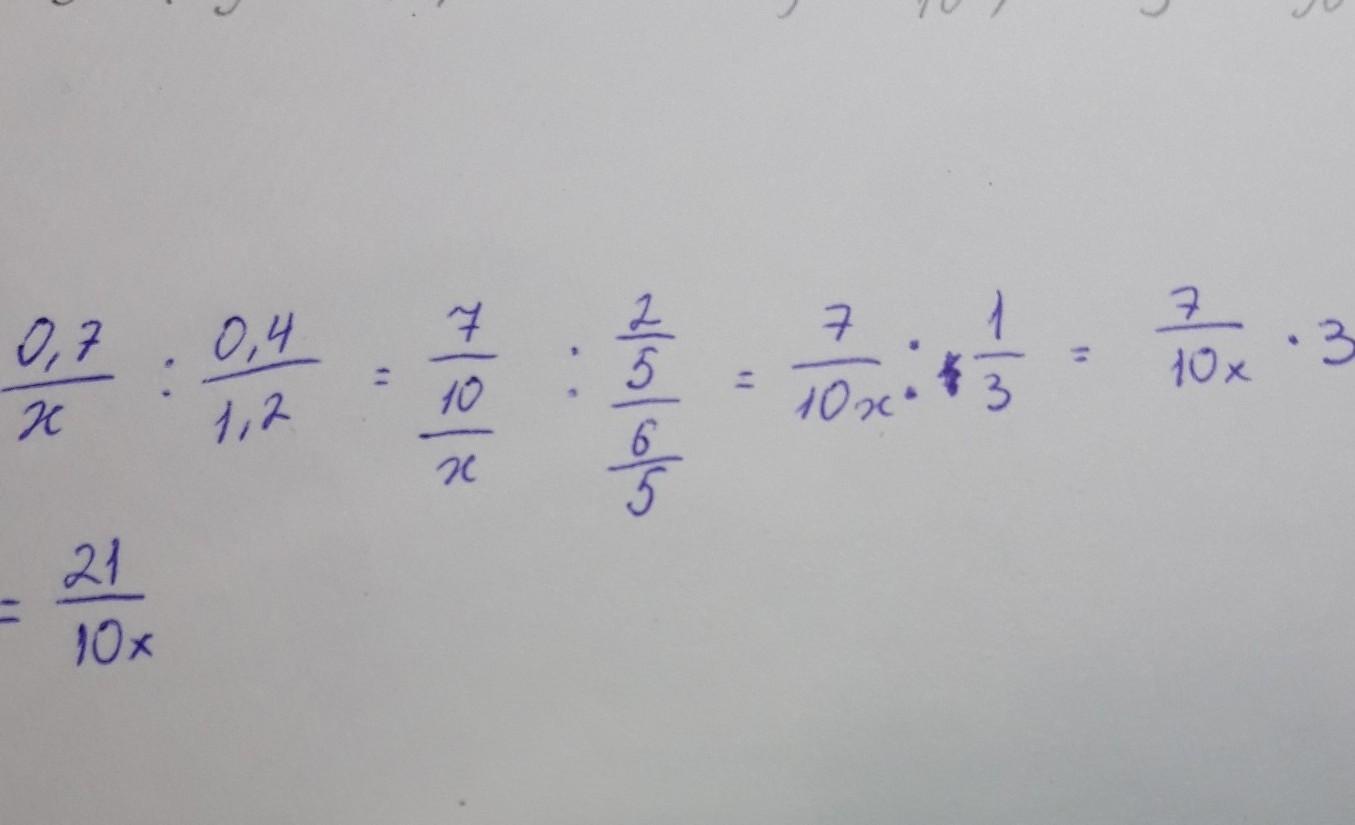 0,7/x : 0,4/1,2 = 7/10/x : 2/5/6/5 = 7/10x : 1/3 = 7/10x · 3
= 21/10x